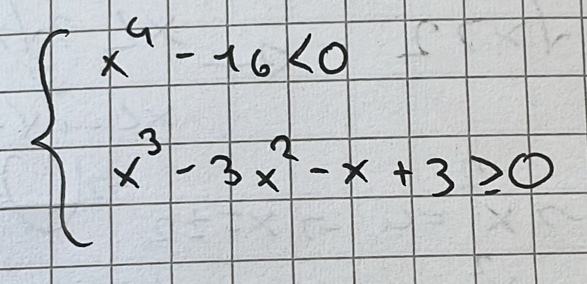 x⁴ - 16 < 0
x³ - 3x² - x + 3 ≥ 0